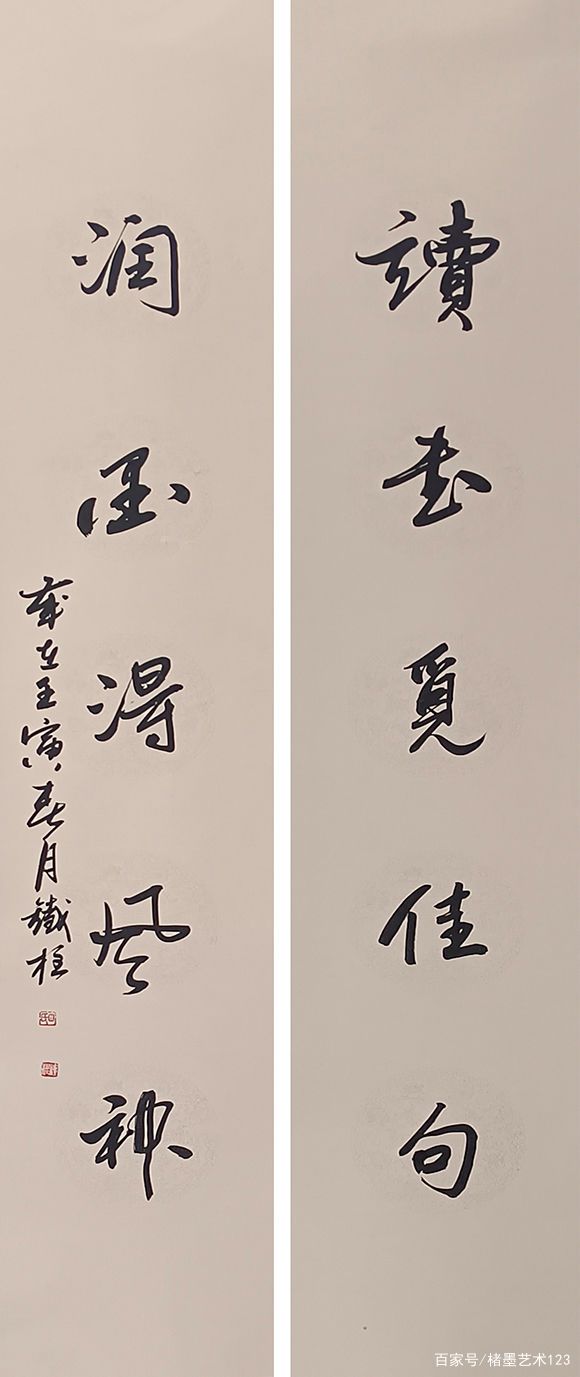 讀书覓佳句
润墨得风神
歲在壬寅春月鐵柱
百家号/楮墨艺术123